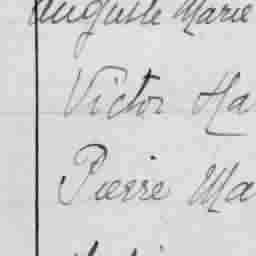 Auguste Marie
Victor Ha
Pierre Ma